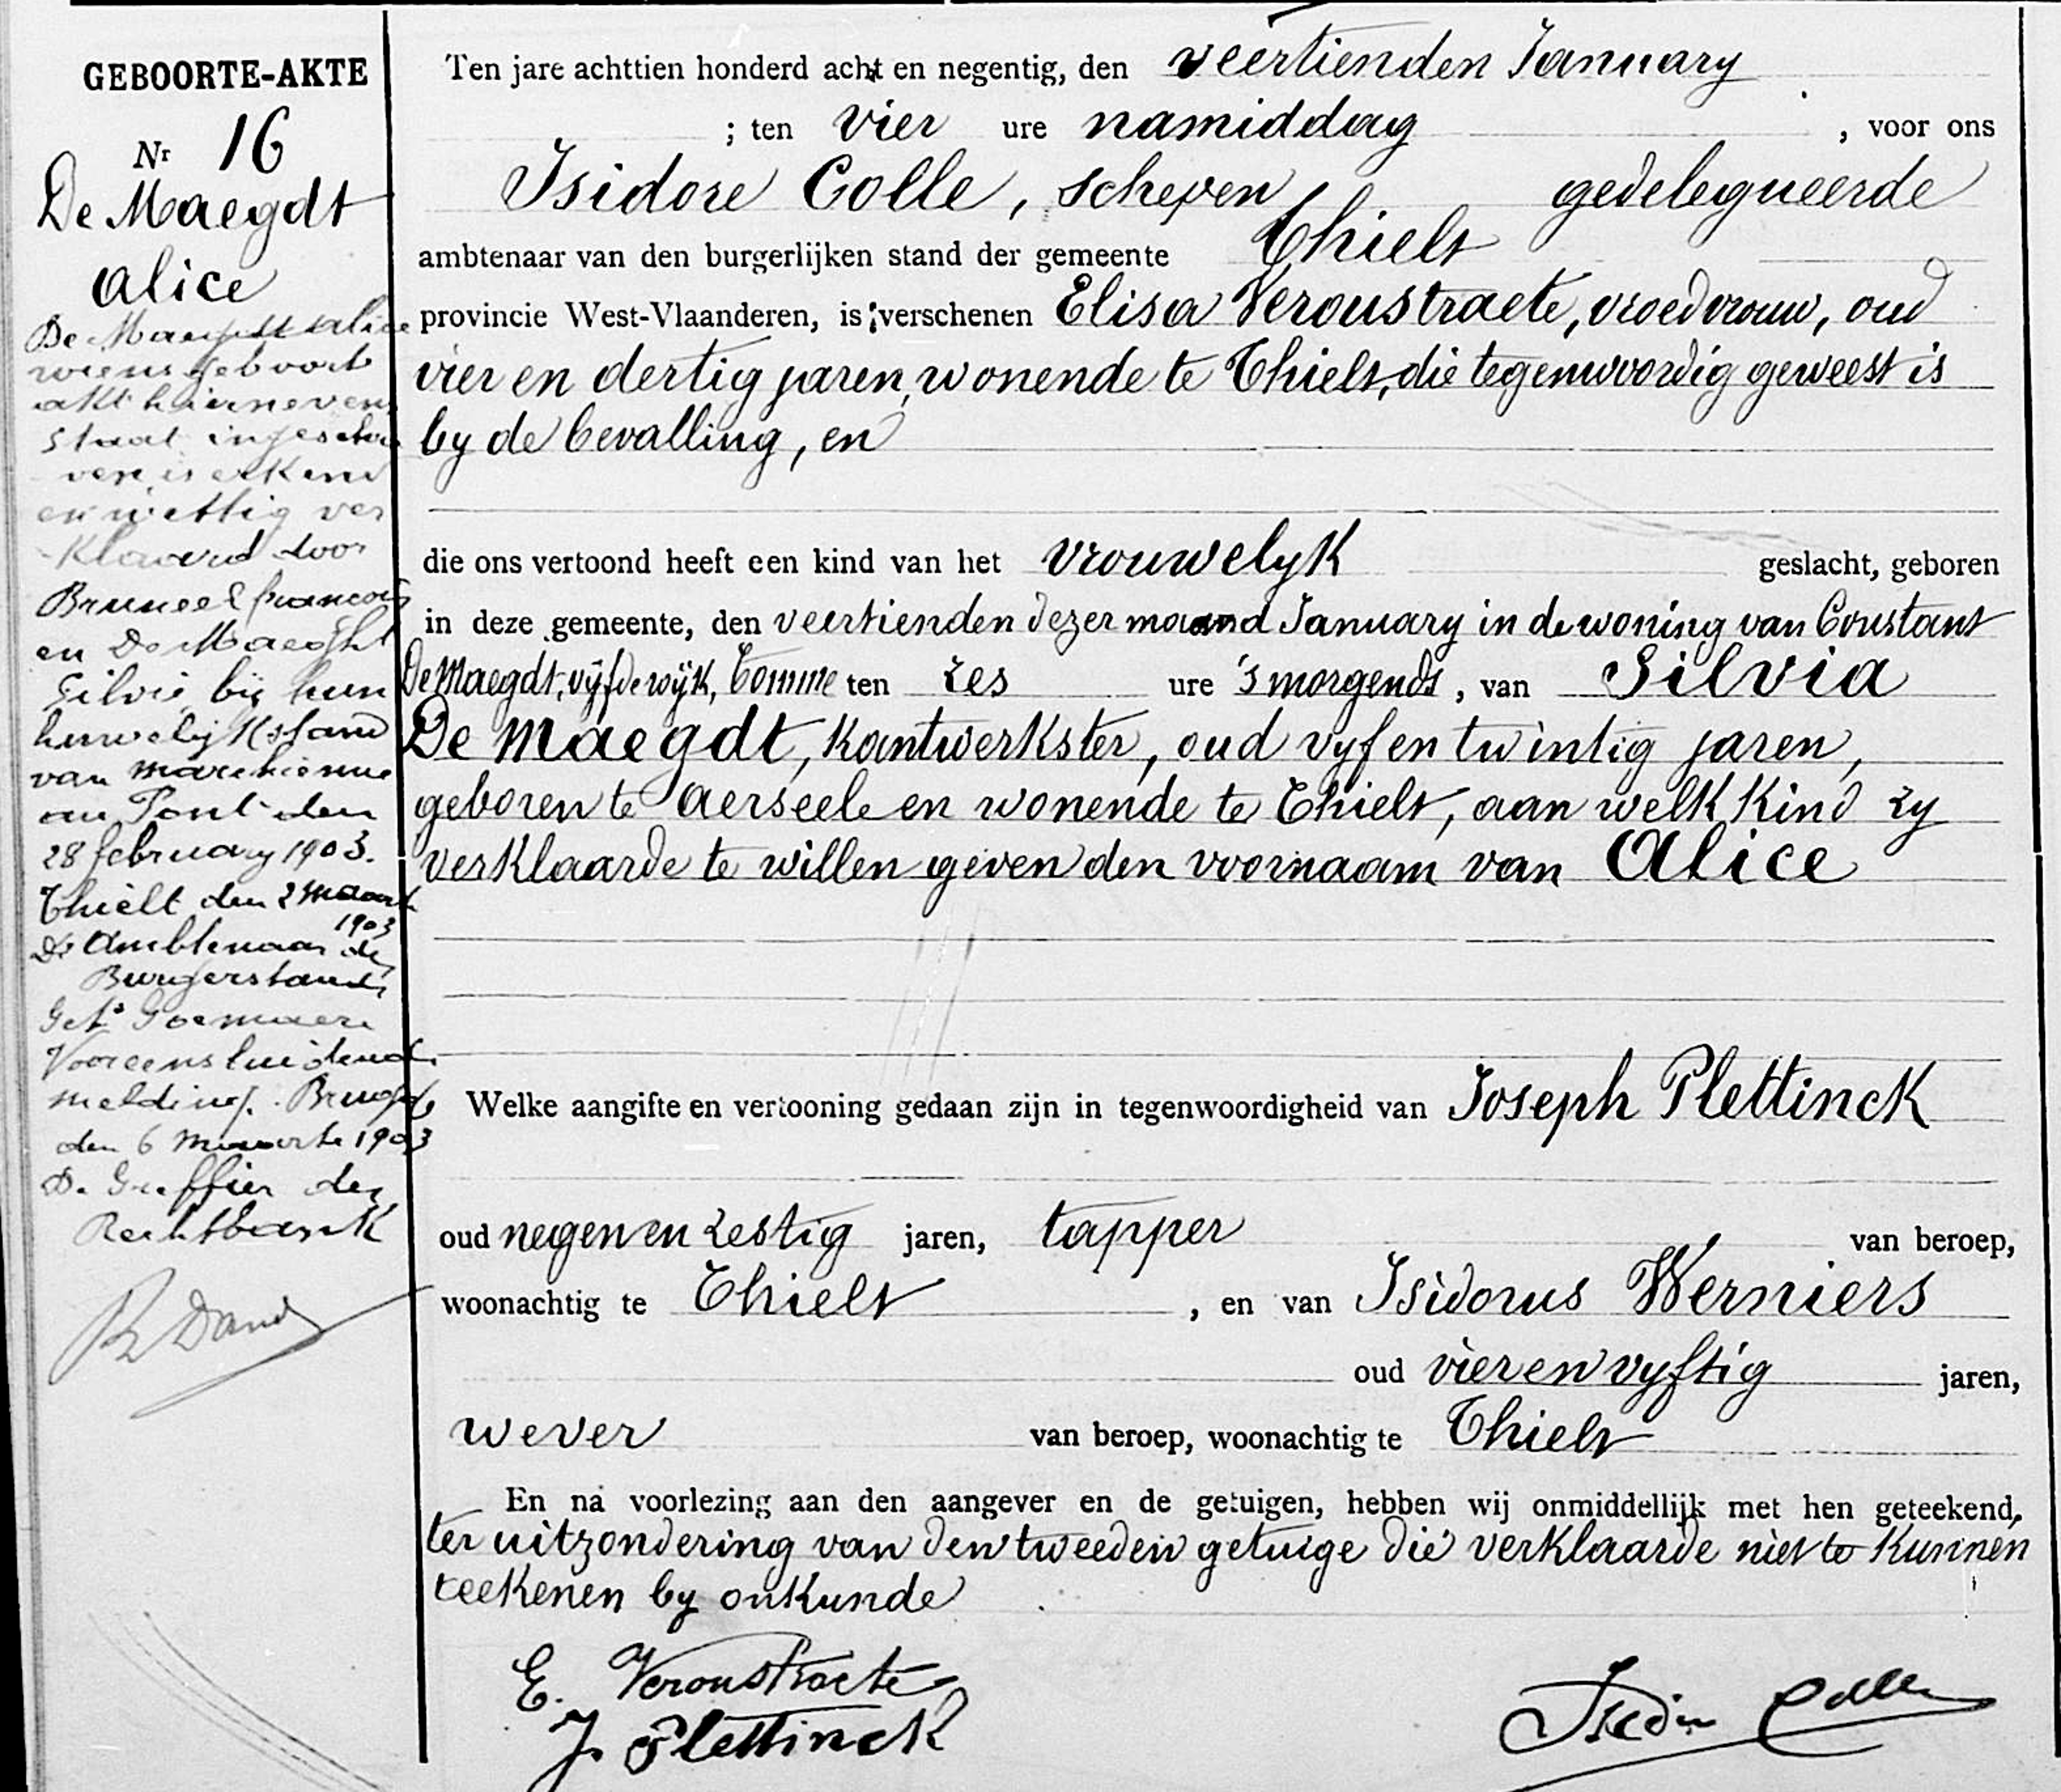 GEBOORTE-AKTE
Nr 16
De Maegdt
Alice
De Maegdt Alice
wiens geboort
akt hiernevens
staat ingeschre
ven is erkend
en wettig ver
klaard door
Bruneel francois
en De Maeght
Silvie bij hun
huwelijksstand
van Marchienne
au Pont den
28 february 1903.
Thielt den 2 maart
1903
De Ambtenaar der
Burgerstand,
Get. Goemaere
Vooreensluidende
melding. Brugge
den 6 maarte 1903
De Greffier der
Rechtbank
Ten jare achttien honderd acht en negentig, den veertienden January
; ten vier ure namiddag , voor ons
Isidore Colle, schepen gedelegueerde
ambtenaar van den burgerlijken stand der gemeente Thielt
provincie West-Vlaanderen, is verschenen Elisa Veroustraete, vroedvrouw, oud
vier en dertig jaren, wonende te Thielt, die tegenwoordig geweest is
by de bevalling, en
die ons vertoond heeft een kind van het vrouwelyk geslacht, geboren
in deze gemeente, den veertienden dezer maand January in de woning van Constant
De Maegdt, vyfde wijk, Tomme ten zes ure 's morgends, van Silvia
De Maegdt, Kantwerkster, oud vyf en twintig jaren,
geboren te Aerseele en wonende te Thielt, aan welk Kind zy
verklaarde te willen geven den voornaam van Alice
Welke aangifte en vertooning gedaan zijn in tegenwoordigheid van Joseph Plettinck
oud negen en zestig jaren, tapper van beroep,
woonachtig te Thielt , en van Isidorus Werniers
oud vier en vyftig jaren,
wever van beroep, woonachtig te Thielt
En na voorlezing aan den aangever en de getuigen, hebben wij onmiddellijk met hen geteekend,
ter uitzondering van den tweeden getuige die verklaarde niet te kunnen
teekenen by onkunde
E. Veroustraete
J. Plettinck
Isidor Colle